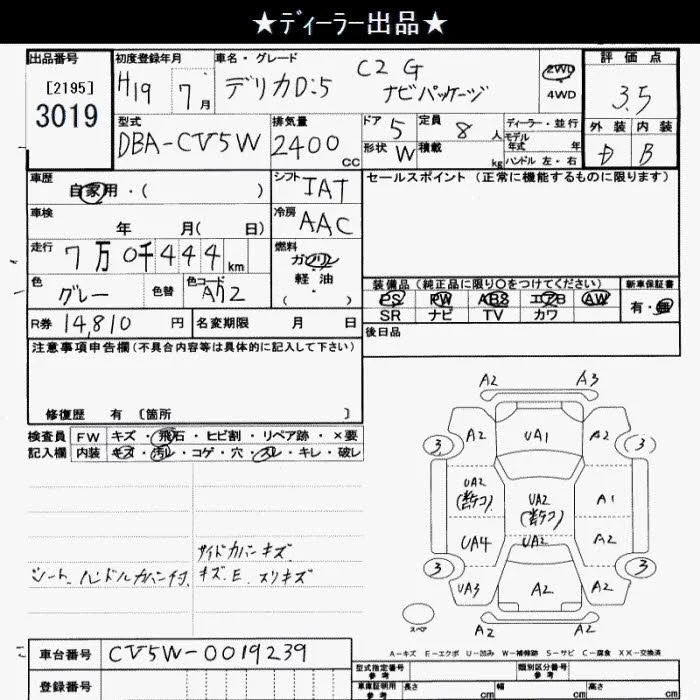 ★ディーラー出品★
出品番号
[2195]
3019
初度登録年月
H19 7月
車名・グレード
デリカD:5 C2 G
ナビパッケージ
2WD
4WD
評価点
3.5
外装 内装
D B
型式
DBA-CV5W
排気量
2400 CC
ドア 5
定員 8人
形状 W
積載 kg
ディーラー・並行
モデル年式 年
ハンドル 左・右
車歴
自家用・( )
シフト IAT
セールスポイント (正常に機能するものに限ります)
車検
年 月( 日)
冷房 AAC
走行
7万0千444km
燃料
ガソリン
軽油
( )
色
グレー
色替
色コード
A72
装備品 (純正品に限り○をつけてください)
新車保証書
PS PW ABS エアB AW
有・無
SR ナビ TV カワ
R券 14,810円
名変期限 月 日
後日品
注意事項申告欄 (不具合内容等は具体的に記入して下さい)
修復歴 有 〔箇所 〕
検査員
記入欄
FW キズ・飛石・ヒビ割・リペア跡・×要
内装 キズ・汚レ・コゲ・穴・スレ・キレ・破レ
サイドカバーキズ
シート、ハンドルカバー付、キズ、E、スリキズ
A2 A3
3 A2 UA1 A2 3
UA2 UA2 A1
UA4 UA2 A2
3 UA3 A2 A2 3
A2 A2
スペア
A-キズ E-エクボ U-凹み W-補修跡 S-サビ C-腐食 XX-交換済
車台番号 CV5W-0019239
登録番号
型式指定番号
参考
類別区分番号
参考
車庫証明用
参考
長さ cm
幅 cm
高さ cm